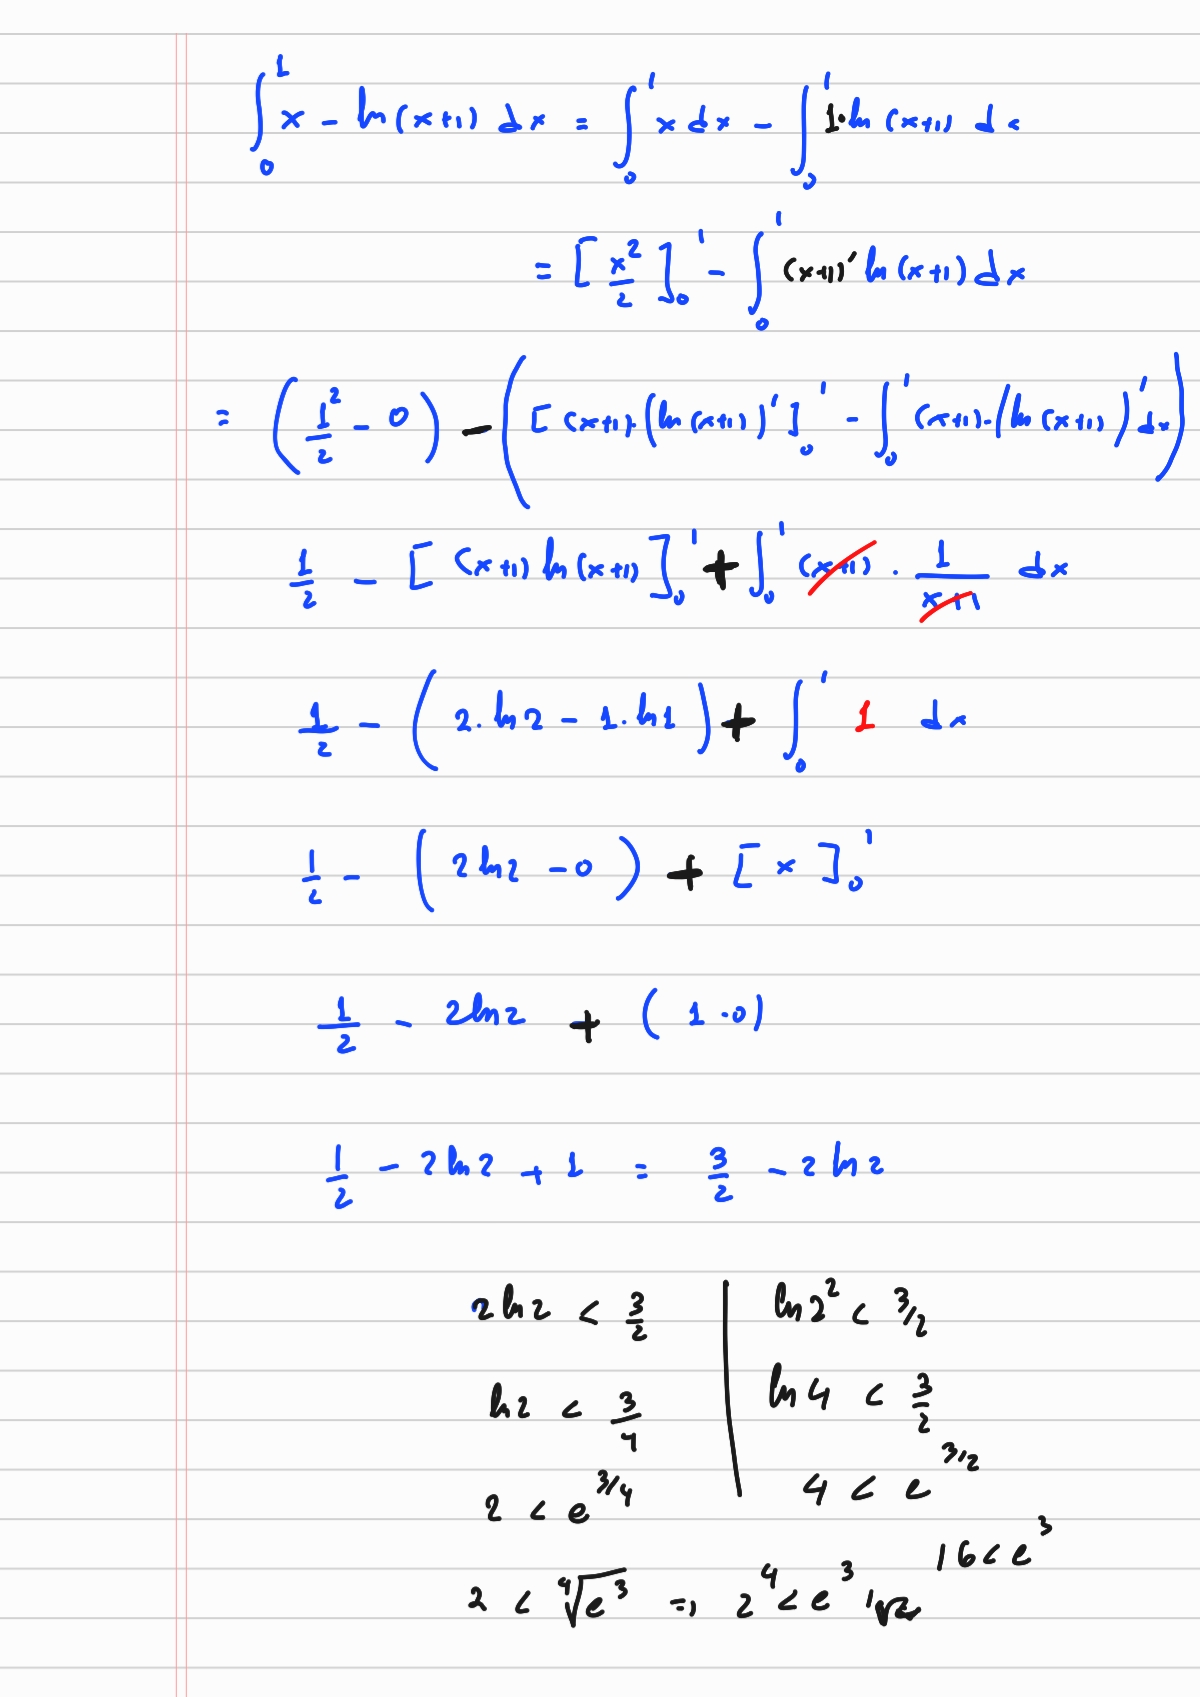 ∫₀¹ x - ln(x+1) dx = ∫₀¹ x dx - ∫₀¹ 1·ln(x+1) dx
= [x²/2]₀¹ - ∫₀¹ (x+1)' ln(x+1) dx
= (1²/2 - 0) - ([(x+1)·(ln(x+1))']₀¹ - ∫₀¹ (x+1)·(ln(x+1))' dx)
1/2 - [(x+1) ln(x+1)]₀¹ + ∫₀¹ (x+1) · 1/(x+1) dx
1/2 - (2·ln2 - 1·ln1) + ∫₀¹ 1 dx
1/2 - (2ln2 - 0) + [x]₀¹
1/2 - 2ln2 + (1-0)
1/2 - 2ln2 + 1 = 3/2 - 2ln2
2ln2 < 3/2 | ln2² < 3/2
ln2 < 3/4 | ln4 < 3/2
2 < e^(3/4) | 4 < e^(3/2)
16 < e³
2 < ⁴√e³ => 2⁴ < e³